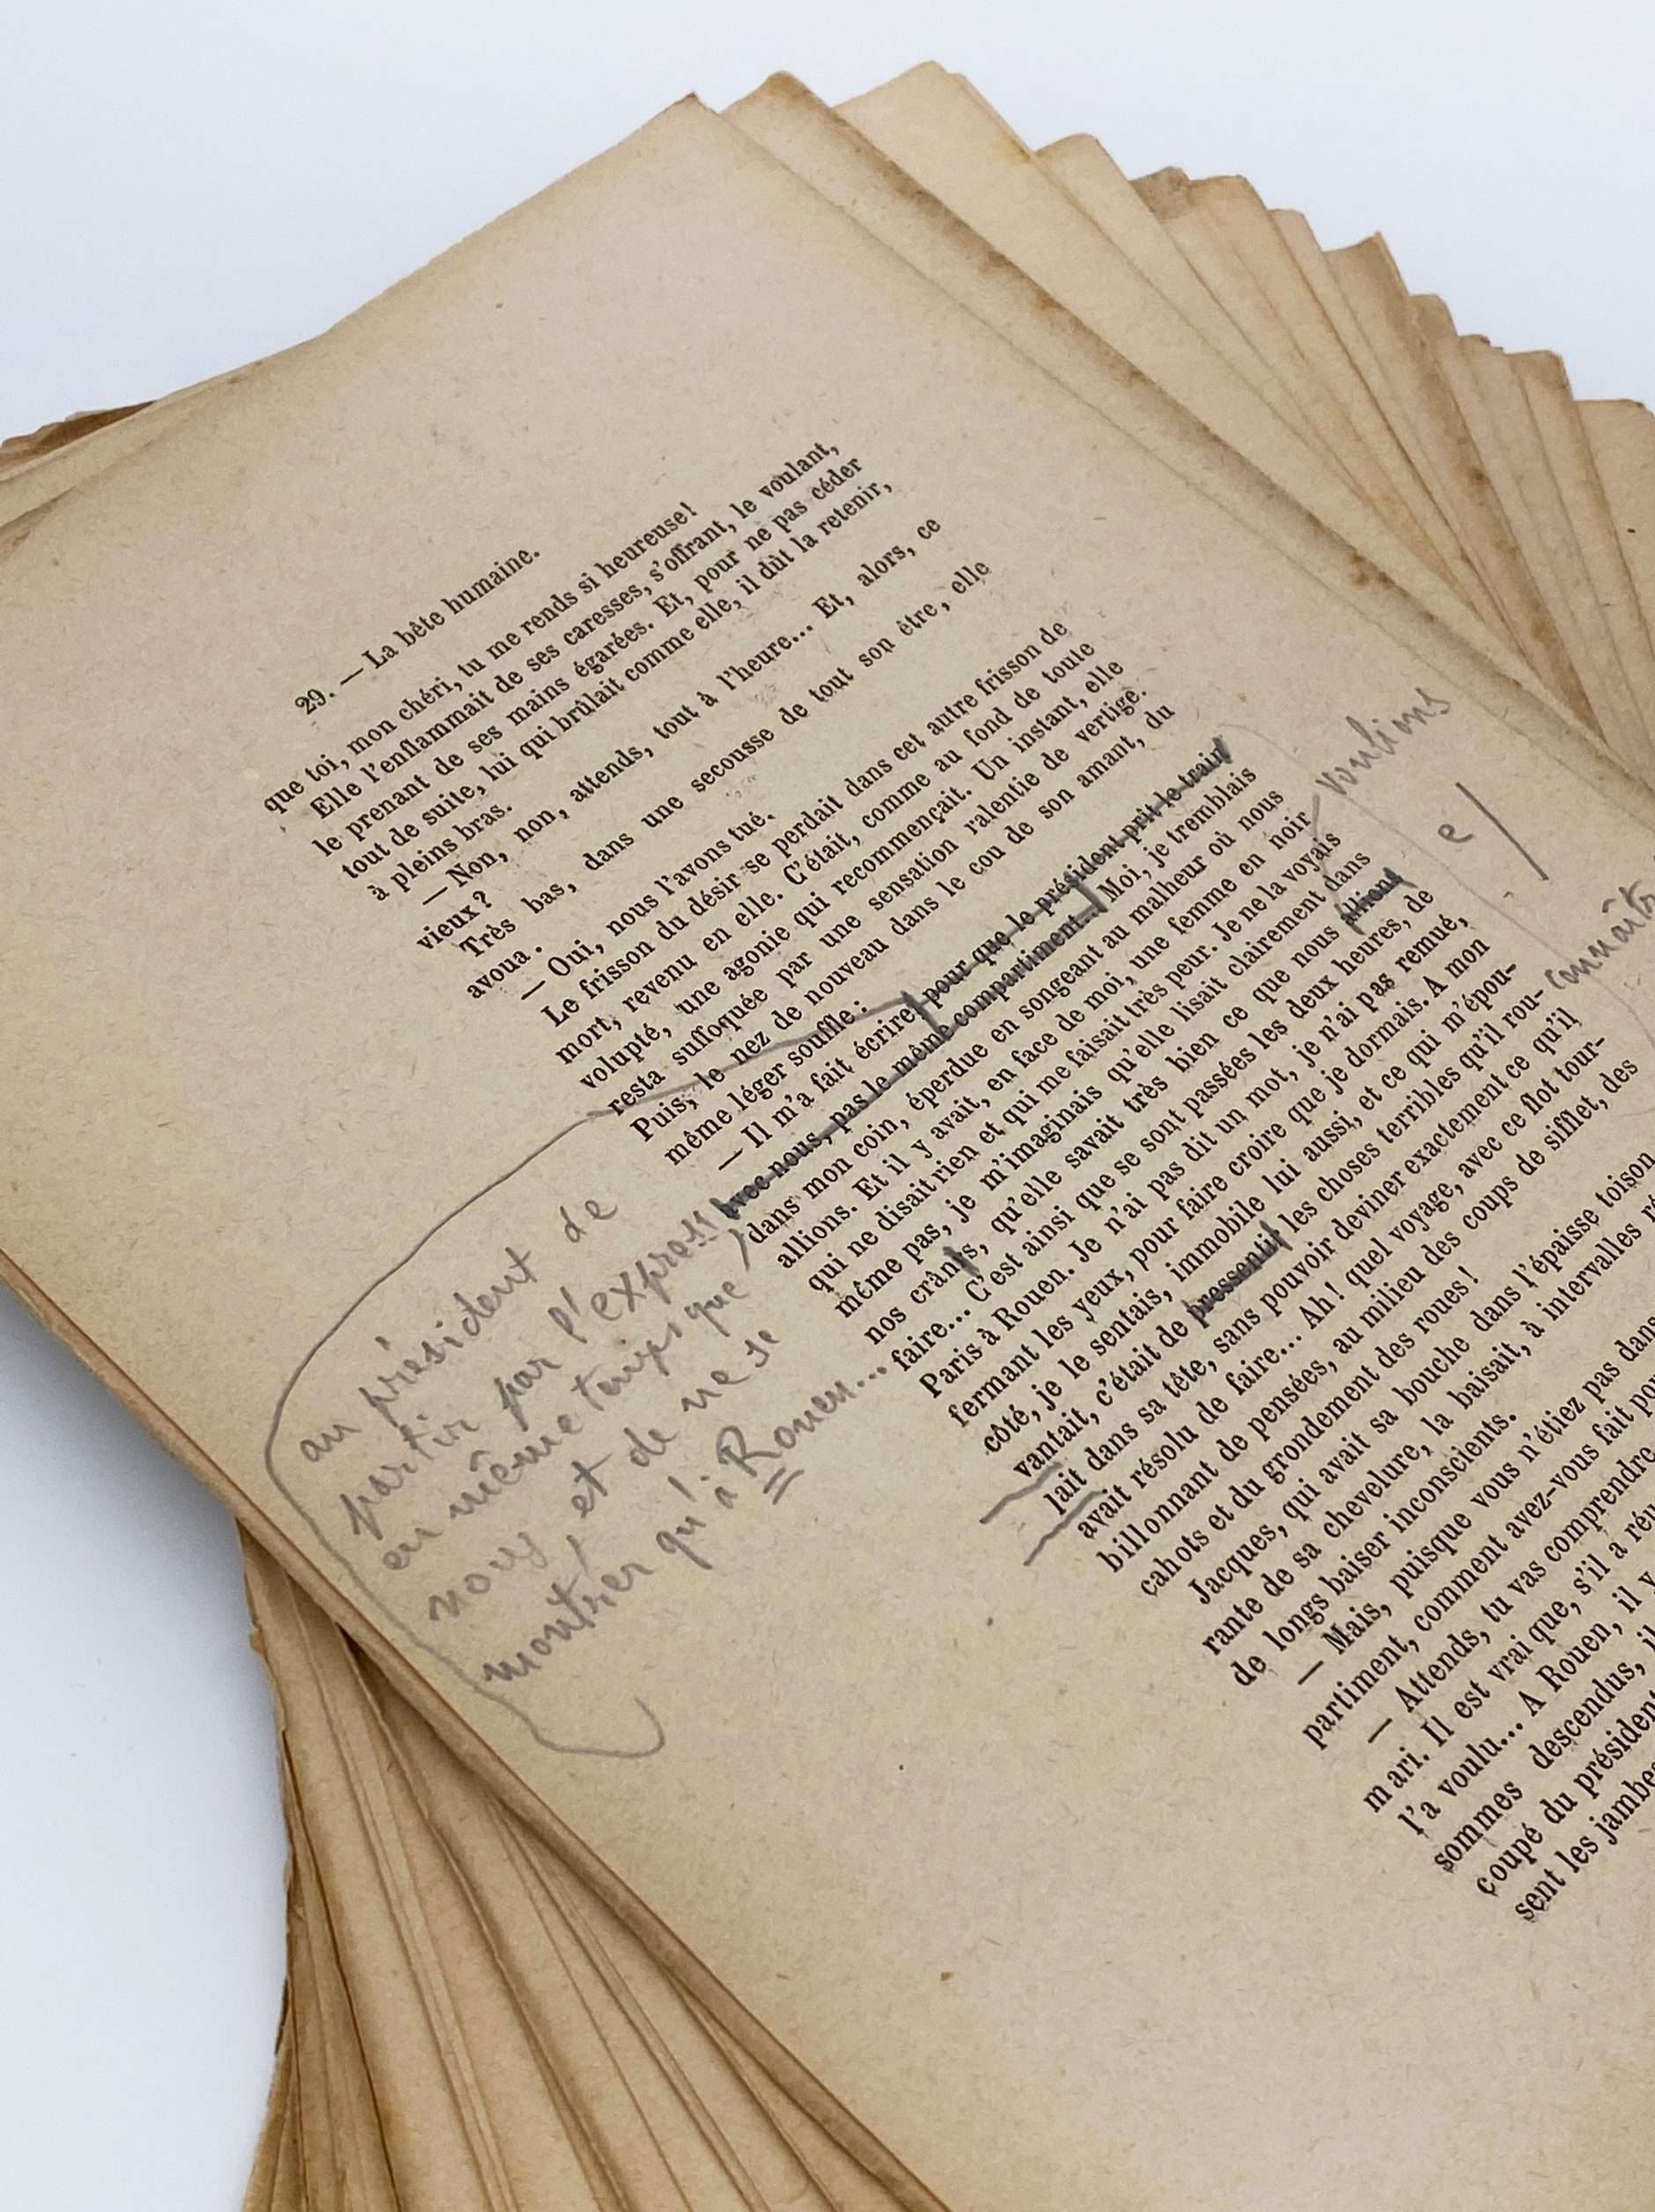 29. — La bête humaine.
que toi, mon chéri, tu me rends si heureuse!
Elle l'enflammait de ses caresses, s'offrant, le voulant,
le prenant de ses mains égarées. Et, pour ne pas céder
tout de suite, lui qui brûlait comme elle, il dût la retenir,
à pleins bras.
— Non, non, attends, tout à l'heure... Et, alors, ce
vieux?
Très bas, dans une secousse de tout son être, elle
avoua.
— Oui, nous l'avons tué.
Le frisson du désir se perdait dans cet autre frisson de
mort, revenu en elle. C'était, comme au fond de toute
volupté, une agonie qui recommençait. Un instant, elle
resta suffoquée par une sensation ralentie de vertige.
Puis, le nez de nouveau dans le cou de son amant, du
même léger souffle:
— Il m'a fait écrire pour que le président prît le train
avec nous, pas le même compartiment... Moi, je tremblais
dans mon coin, éperdue en songeant au malheur où nous
allions. Et il y avait, en face de moi, une femme en noir
qui ne disait rien et qui me faisait très peur. Je ne la voyais
même pas, je m'imaginais qu'elle lisait clairement dans
nos crânes, qu'elle savait très bien ce que nous allions
faire... C'est ainsi que se sont passées les deux heures, de
Paris à Rouen. Je n'ai pas dit un mot, je n'ai pas remué,
fermant les yeux, pour faire croire que je dormais. A mon
côté, je le sentais, immobile lui aussi, et ce qui m'épou-
vantait, c'était de pressentir les choses terribles qu'il rou-
lait dans sa tête, sans pouvoir deviner exactement ce qu'il
avait résolu de faire... Ah! quel voyage, avec ce flot tour-
billonnant de pensées, au milieu des coups de sifflet, des
cahots et du grondement des roues!
Jacques, qui avait sa bouche dans l'épaisse toison
rante de sa chevelure, la baisait, à intervalles
de longs baiser inconscients.
— Mais, puisque vous n'étiez pas dans
partiment, comment avez-vous fait
— Attends, tu vas comprendre
mari. Il est vrai que, s'il a
l'a voulu... A Rouen, il y
sommes descendus,
coupé du président
sent les
au président de
partir par l'express
en même temps que
nous, et de ne se
montrer qu'à Rouen...
voulions
e/
connaître